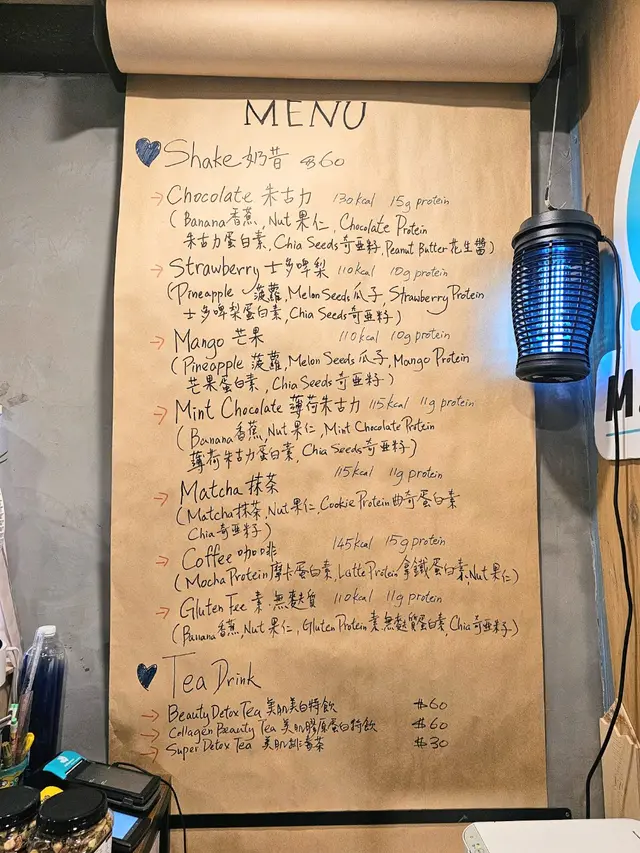 MENU
Shake 奶昔 $60
→ Chocolate 朱古力 130kcal 15g protein
(Banana香蕉, Nut 果仁, Chocolate Protein
朱古力蛋白素, Chia Seeds奇亞籽, Peanut Butter花生醬)
→ Strawberry 士多啤梨 110kcal 10g protein
(Pineapple 菠蘿, Melon Seeds瓜子, Strawberry Protein
士多啤梨蛋白素, Chia Seeds奇亞籽)
→ Mango 芒果 110kcal 10g protein
(Pineapple 菠蘿, Melon Seeds瓜子, Mango Protein
芒果蛋白素, Chia Seeds奇亞籽)
→ Mint Chocolate 薄荷朱古力 115kcal 11g protein
(Banana香蕉, Nut果仁, Mint Chocolate Protein
薄荷朱古力蛋白素, Chia Seeds奇亞籽)
→ Matcha 抹茶 115kcal 11g protein
(Matcha抹茶, Nut果仁, Cookie Protein曲奇蛋白素
Chia奇亞籽)
→ Coffee 咖啡 145kcal 15g protein
(Mocha Protein摩卡蛋白素, Latte Protein拿鐵蛋白素, Nut果仁)
→ Gluten Free 素.無麩質 110kcal 11g protein
(Banana香蕉, Nut果仁, Gluten Protein素.無麩質蛋白素, Chia奇亞籽)
Tea Drink
→ Beauty Detox Tea 美肌美白特飲 $60
→ Collagen Beauty Tea 美肌膠原蛋白特飲 $60
→ Super Detox Tea 美肌排毒茶 $30
M